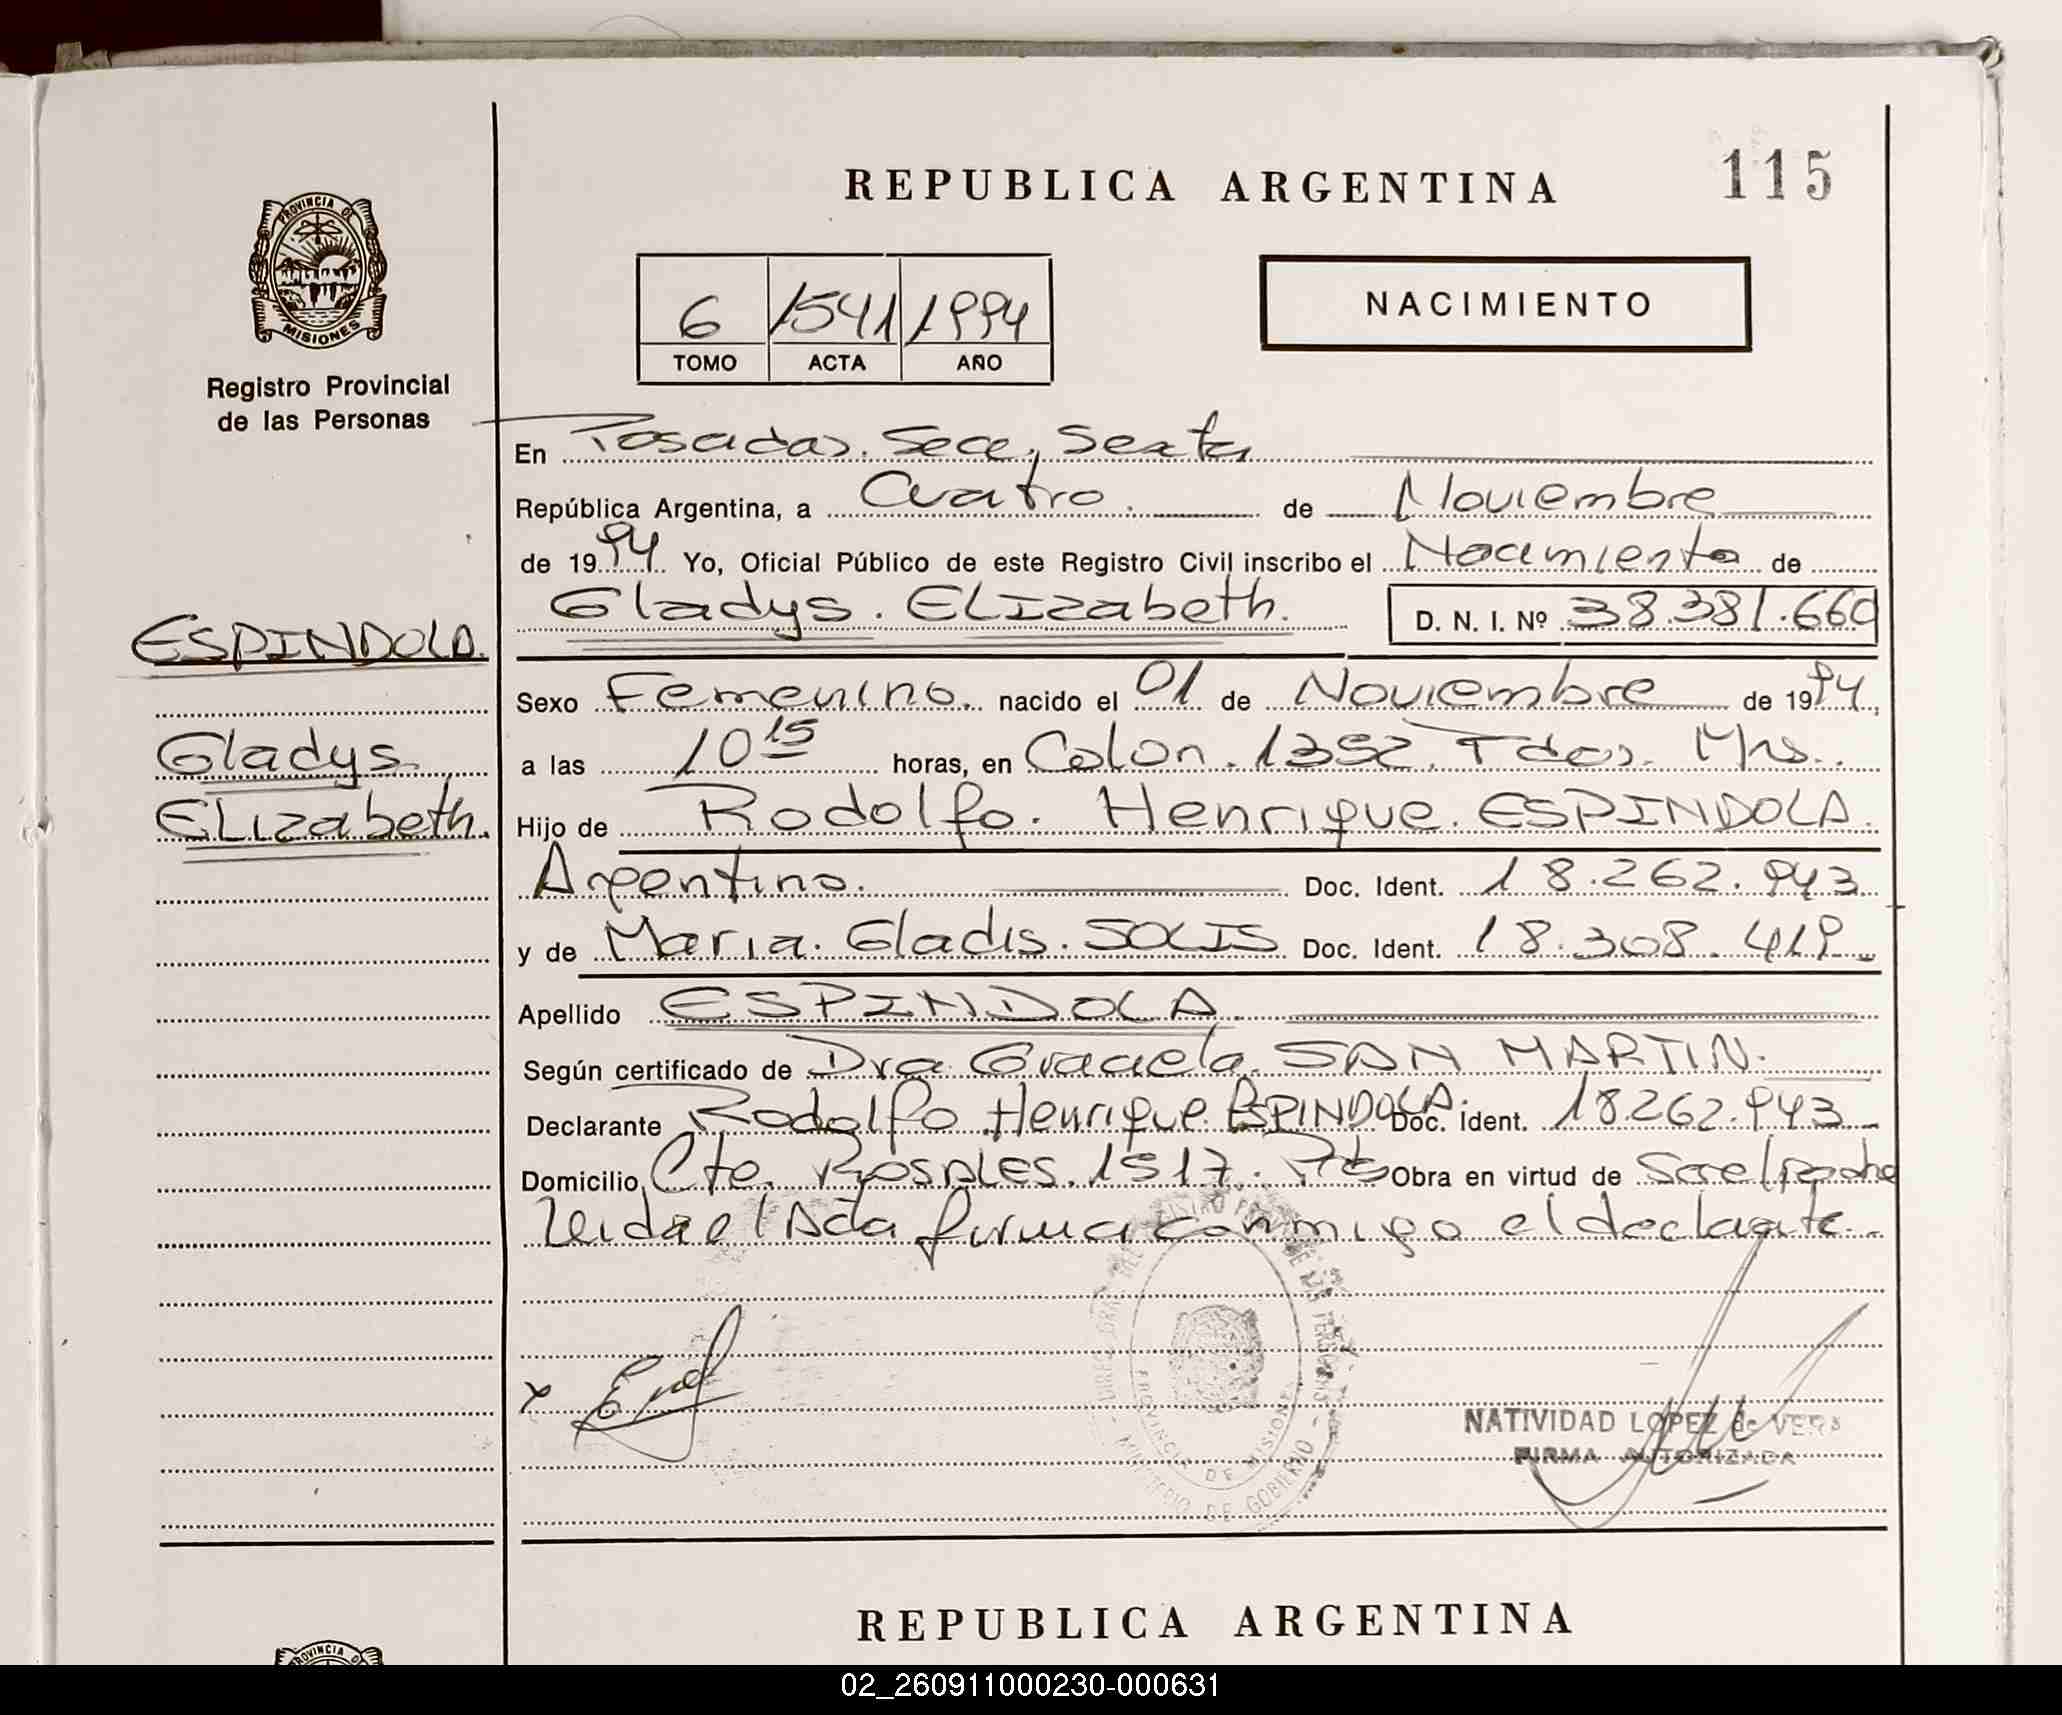 REPUBLICA ARGENTINA
115
PROVINCIA DE
MISIONES
Registro Provincial
de las Personas
6 1541 1994
TOMO ACTA AÑO
NACIMIENTO
En Posadas. Secc, Sexta
República Argentina, a Cuatro. de Noviembre
de 1994 Yo, Oficial Público de este Registro Civil inscribo el Nacimiento de
Gladys. ELIzabeth. D. N. I. Nº 38.381.660
ESPINDOLA.
Gladys
ELIzabeth.
Sexo Femenino. nacido el 01 de Noviembre de 1994,
a las 10 15 horas, en Colon. 1352. Pdas. Mns.
Hijo de Rodolfo. Henrique. ESPINDOLA.
Argentino. Doc. Ident. 18.262.943
y de Maria. Gladis. SOLIS Doc. Ident. 18.308.419
Apellido ESPINDOLA
Según certificado de Dra Graciela. SAN MARTIN.
Declarante Rodolfo Henrique. ESPINDOLA. Doc. Ident. 18.262.943
Domicilio Cte. ROSALES. 1517. Obra en virtud de
Leida el Acta firma conmigo el declarante.
PROVINCIA DE MISIONES
MINISTERIO DE GOBIERNO
NATIVIDAD LOPEZ de VERA
FIRMA AUTORIZADA
REPUBLICA ARGENTINA
PROVINCIA DE
02_260911000230-000631